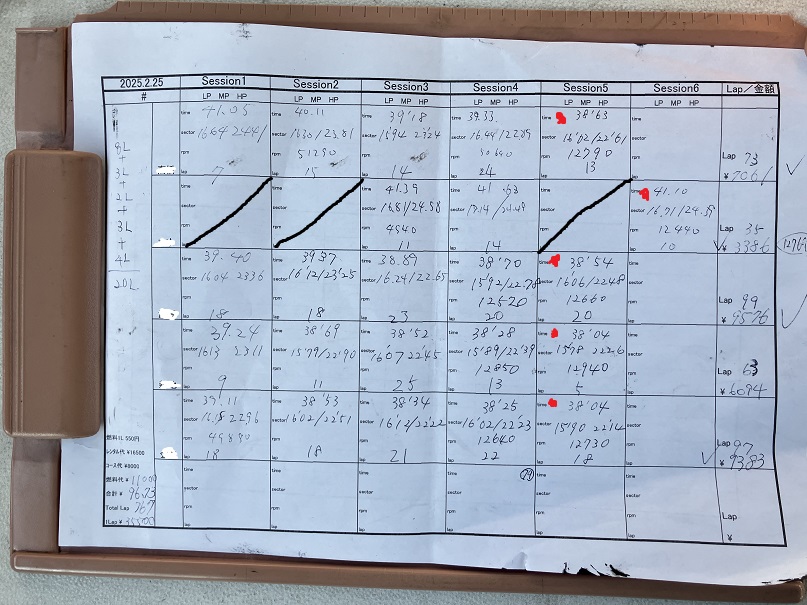 2025.2.25 Session1 Session2 Session3 Session4 Session5 Session6 Lap／金額
# LP MP HP LP MP HP LP MP HP LP MP HP LP MP HP LP MP HP
time 41.05 time 40.11 time 39'18 time 39.33 time 38'63 time
sector 1664 2441 sector sector sector 16.44/22.89 sector 16'02/22'61 sector
rpm rpm 51290 rpm rpm rpm 12790 rpm Lap 73
lap 7 lap 15 lap 14 lap 24 lap 13 lap ¥7061
8L
+
3L
+
2L
+
3L
+
4L
20L
time time time 41.39 time 41 time time 41.10
sector sector sector 16.81/24.58 sector sector sector 16.71/24.39
rpm rpm rpm rpm rpm rpm 12440 Lap 35
lap lap lap 11 lap 14 lap lap 10 ¥3386
time 39.40 time 39'37 time 38.89 time 38'70 time 38'54 time
sector 1604 2336 sector 16'12/23'25 sector 16.24/22.65 sector 15'92/22.78 sector 16'06/2248 sector
rpm rpm rpm rpm 12520 rpm 12660 rpm Lap 99
lap 18 lap 18 lap 23 lap 20 lap 20 lap ¥9576
time 39.24 time 38'69 time 38'52 time 38'28 time 38'04 time
sector 1613 2311 sector 15'79/22'90 sector 16'07 22'45 sector 15'89/22'39 sector 15'78 222'6 sector
rpm rpm rpm rpm 12850 rpm 12940 rpm Lap 63
lap 9 lap 11 lap 25 lap 13 lap 5 lap ¥6094
time 39'11 time 38'53 time 38'34 time 38'25 time 38'04 time
sector 16.15 2296 sector 16'02/22'51 sector 16'12/22'22 sector 16'02/22'23 sector 15'90 22'14 sector
rpm 49890 rpm rpm rpm 12640 rpm 12930 rpm Lap 97
lap 18 lap 18 lap 21 lap 22 lap 18 lap ¥9383
燃料1L 550円
レンタル代 ¥16500
コース代 ¥8000
燃料代 ¥11000
合計 ¥
Total Lap 367
1Lap ¥35500
time time time time time time
sector sector sector sector sector sector
rpm rpm rpm rpm rpm rpm Lap
lap lap lap lap lap lap ¥